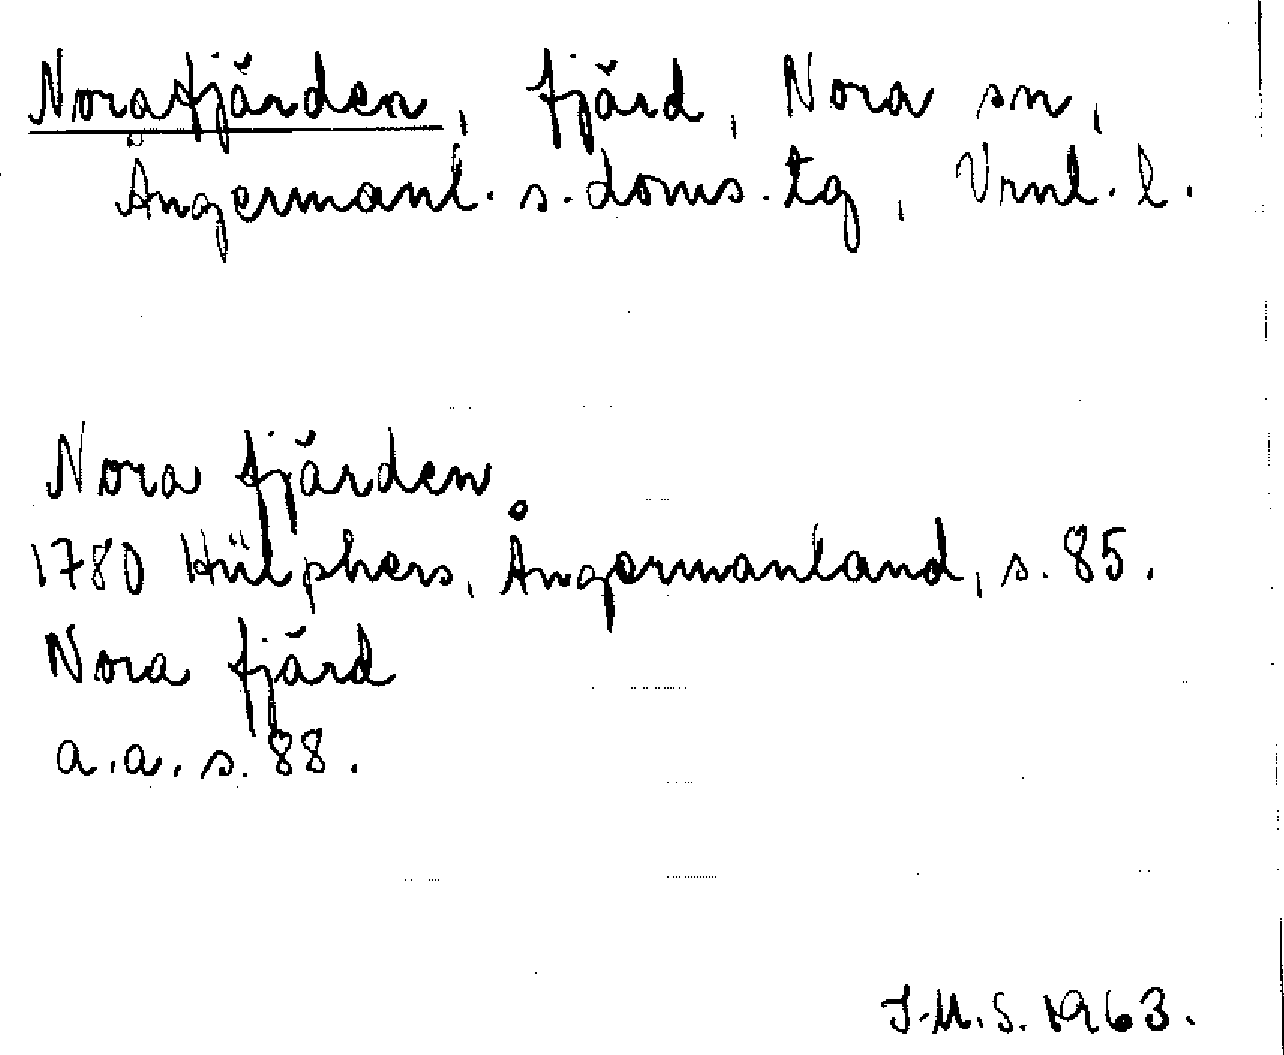 Norafjärden, fjärd, Nora sn,
Ångermanl. s. doms. tg, Vrnl. l.
Nora fjärden
1780 Hülphers, Ångermanland, s. 85.
Nora fjärd
a.a. s. 88.
I.M.S. 1963.